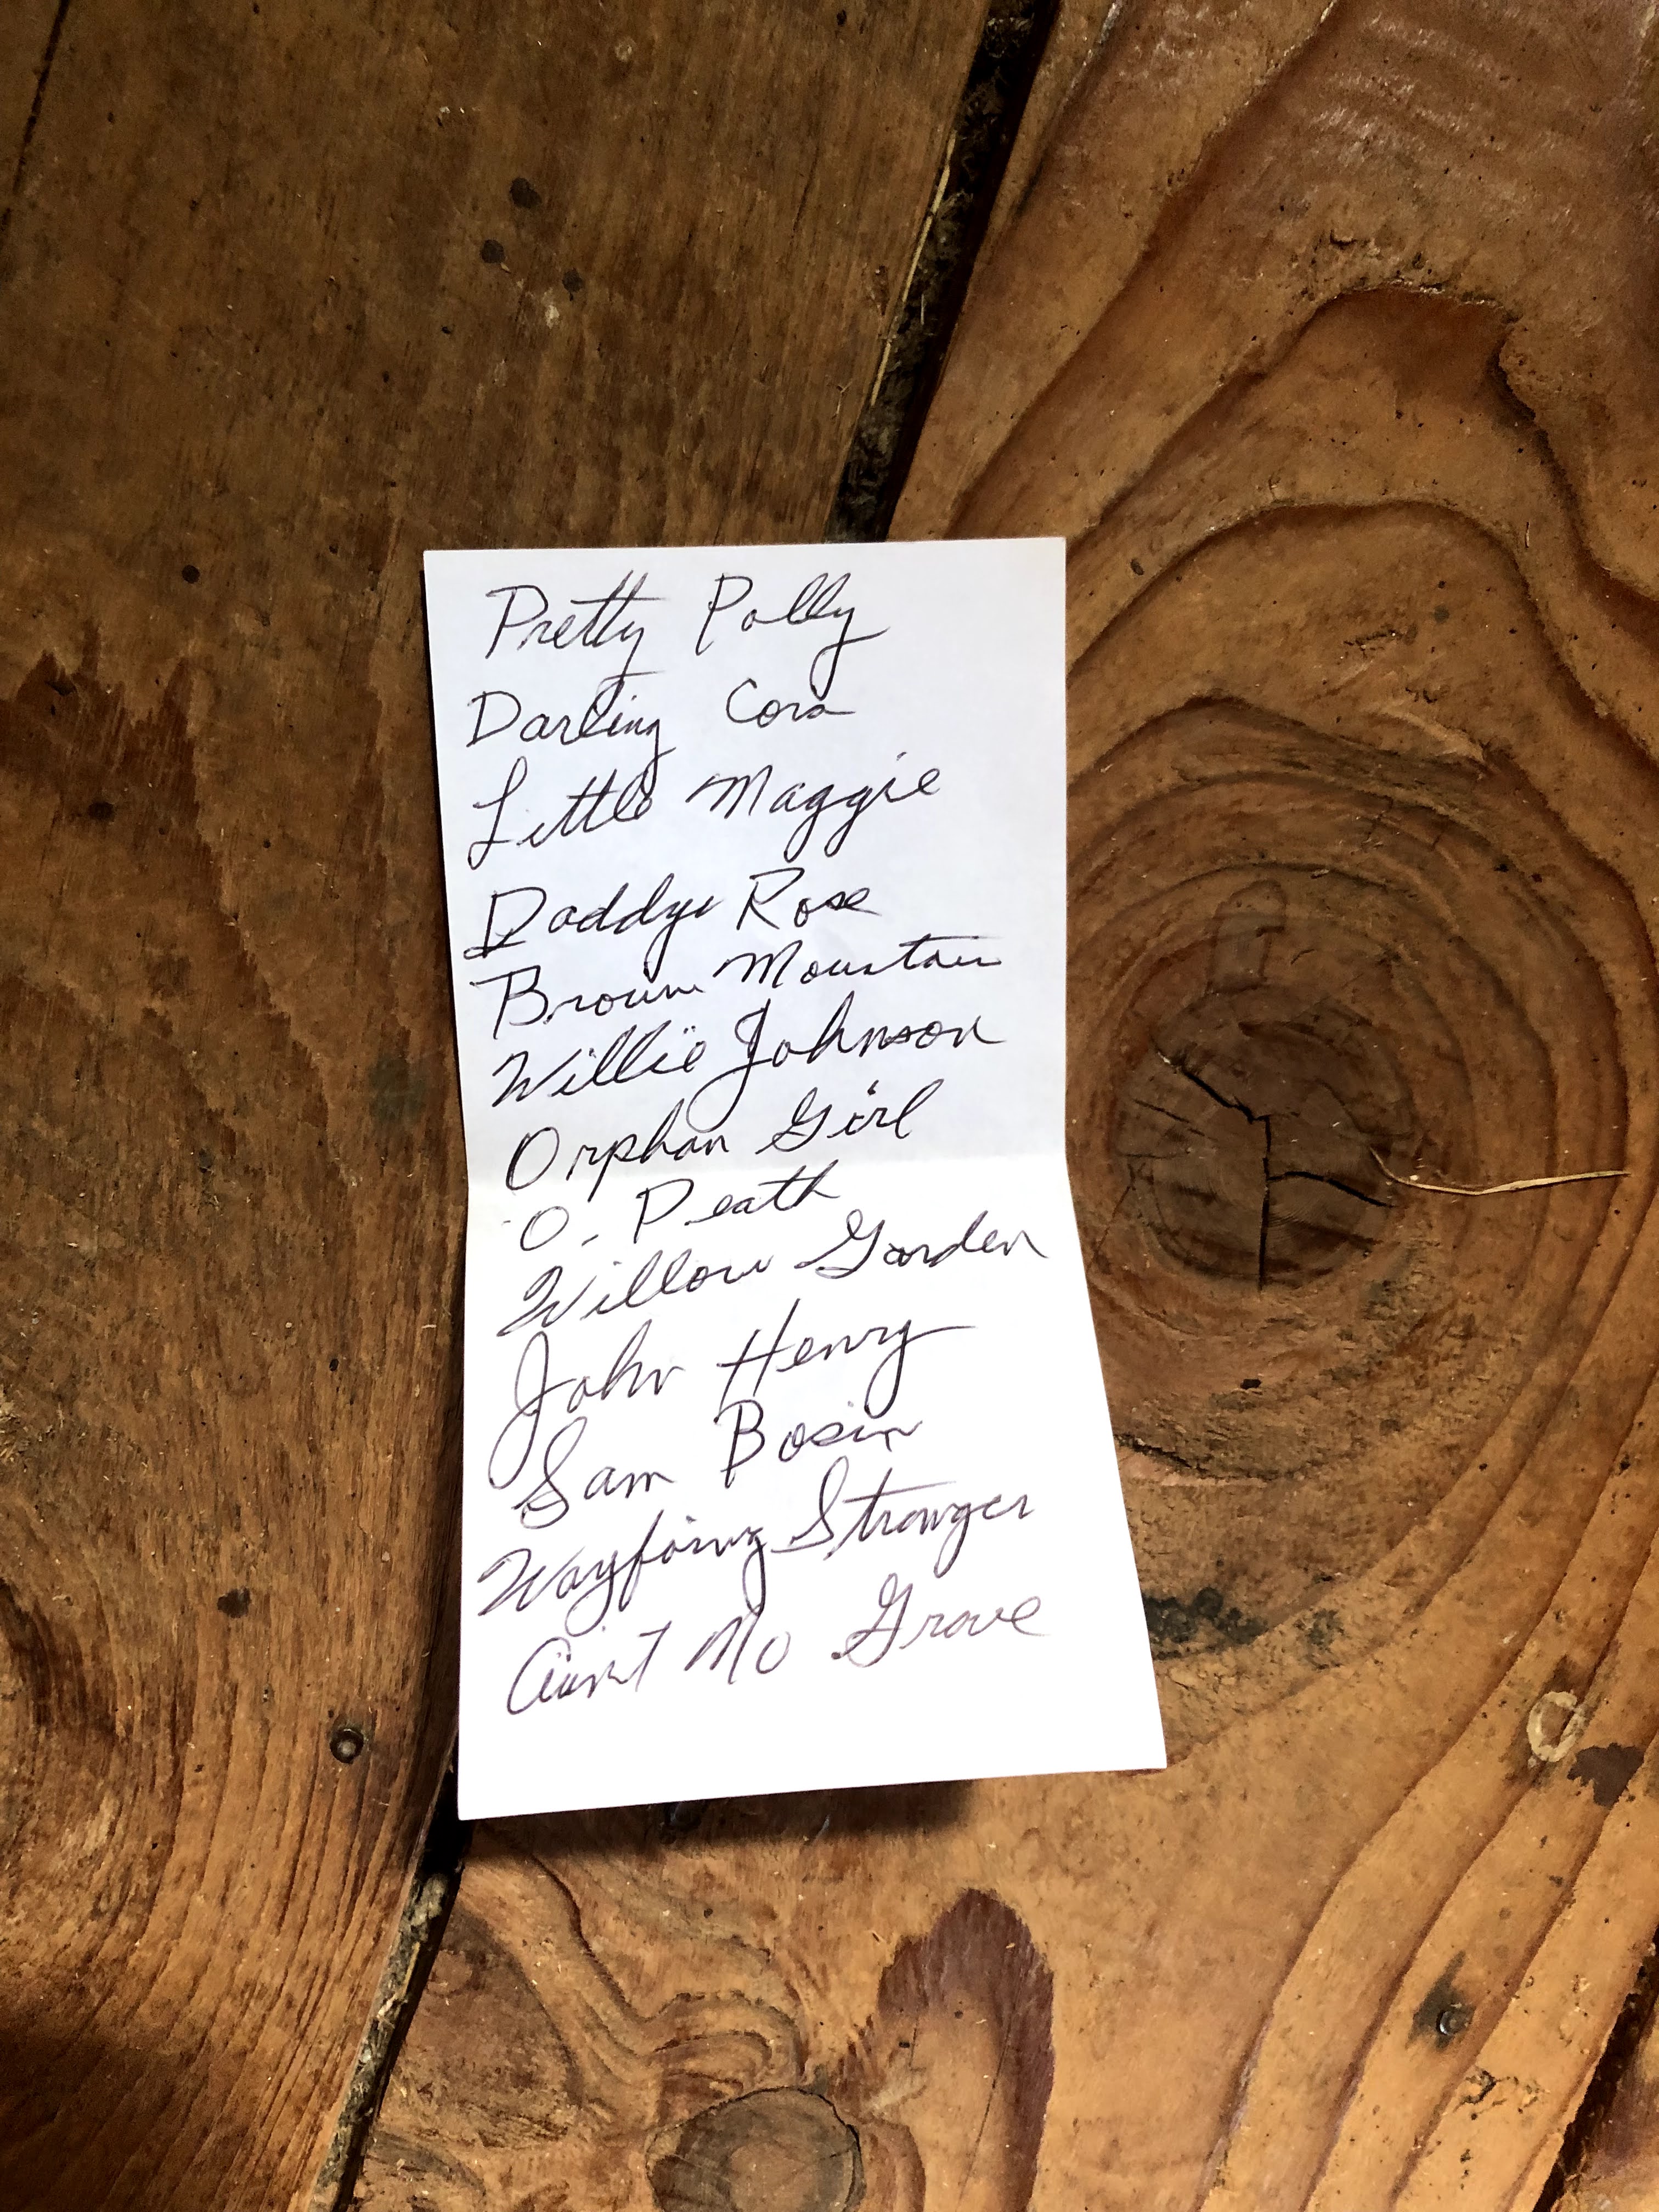 Pretty Polly
Darling Cora
Little Maggie
Daddys Rose
Brown Mountain
Willie Johnson
Orphan Girl
O, Death
Willow Garden
John Henry
Sam Bosin
Wayfaring Stranger
Aint No Grave